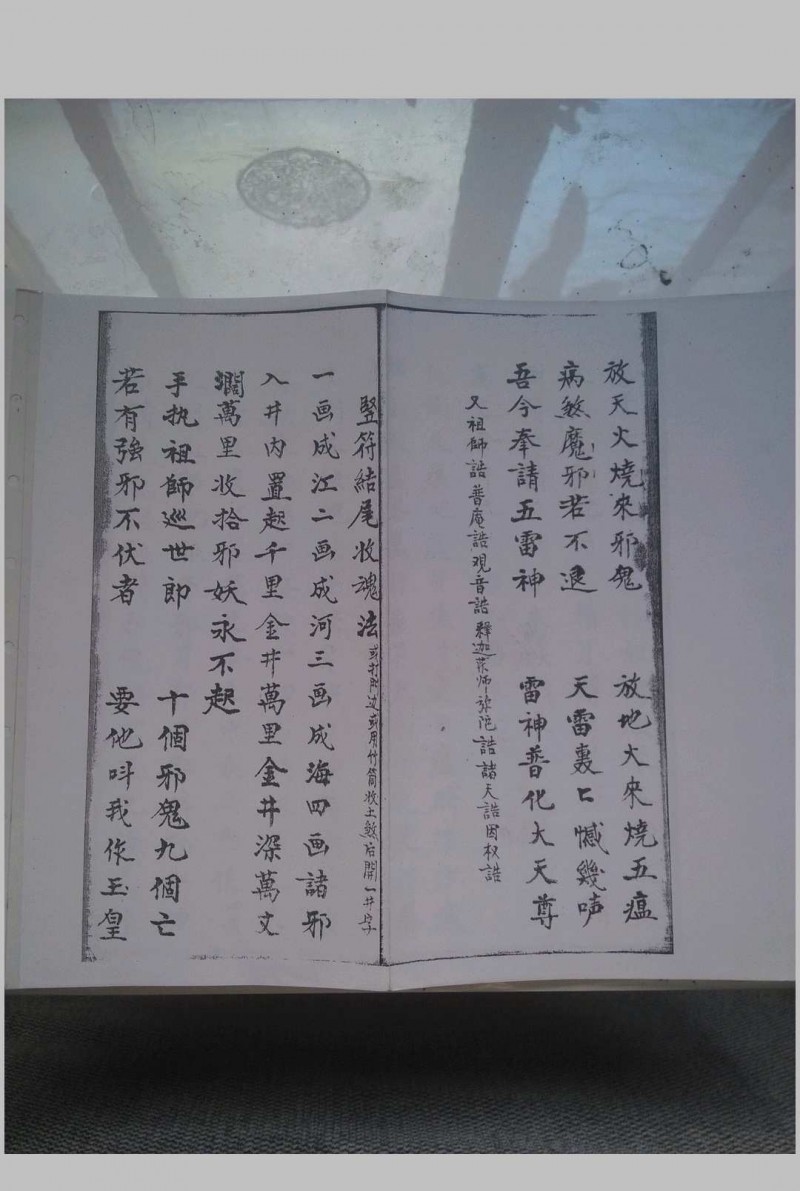 放天火燒來邪鬼 放地大來燒五瘟
病煞魔邪若不退 天雷轟匕憾幾声
吾今奉請五雷神 雷神普化大天尊
又祖師誥普庵誥观音誥釋迦茶师弥陀誥諸天誥因权誥
竪符結尾收魂法 或打用竹筒收土煞后開一井字
一画成江二画成河三画成海四画諸邪
入井內置起千里金井萬里金井深萬丈
濶萬里收拾邪妖永不起
手执祖師巡世郎 十個邪鬼九個亡
若有強邪不伏者 要他叫我作玉皇